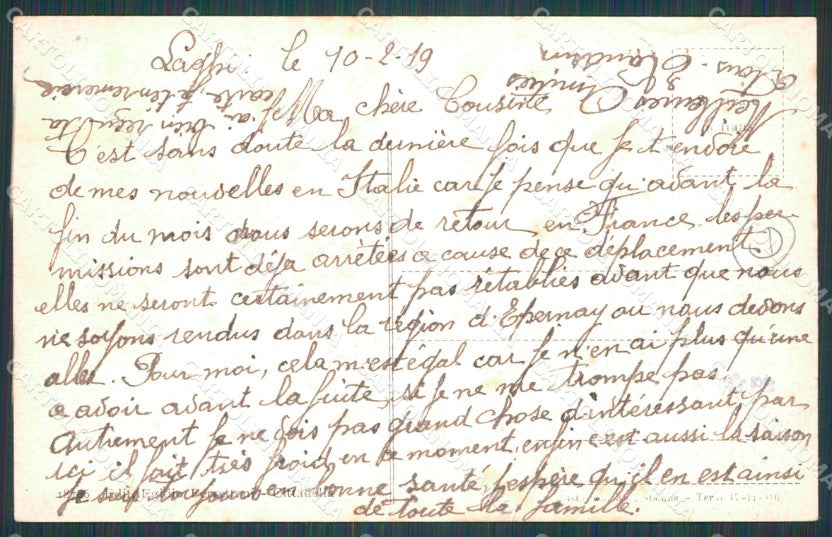 le 10-2-19
Ma chère Cousine
C'est sans doute la dernière fois que je t'envoie
de mes nouvelles en Italie car je pense qu'avant la
fin du mois nous serons de retour en France. les per-
missions sont déja arrètées a cause de ce déplacement.
elles ne seront certainement pas rétablies avant que nous
ne soyons rendus dans la région d'Epernay ou nous devons
aller. Pour moi, cela m'est égal car je n'en ai plus qu'une
a avoir avant la fuite, si je ne me trompe pas.
Autrement je ne vois pas grand chose d'intéressant par
ici il fait très froid en ce moment, enfin c'est aussi la saison
Je suis toujours en bonne santé, j'espère qu'il en est ainsi
de toute la famille.
J'ai bien reçu ta
carte, je t'en remercie
Meilleures Amitiés